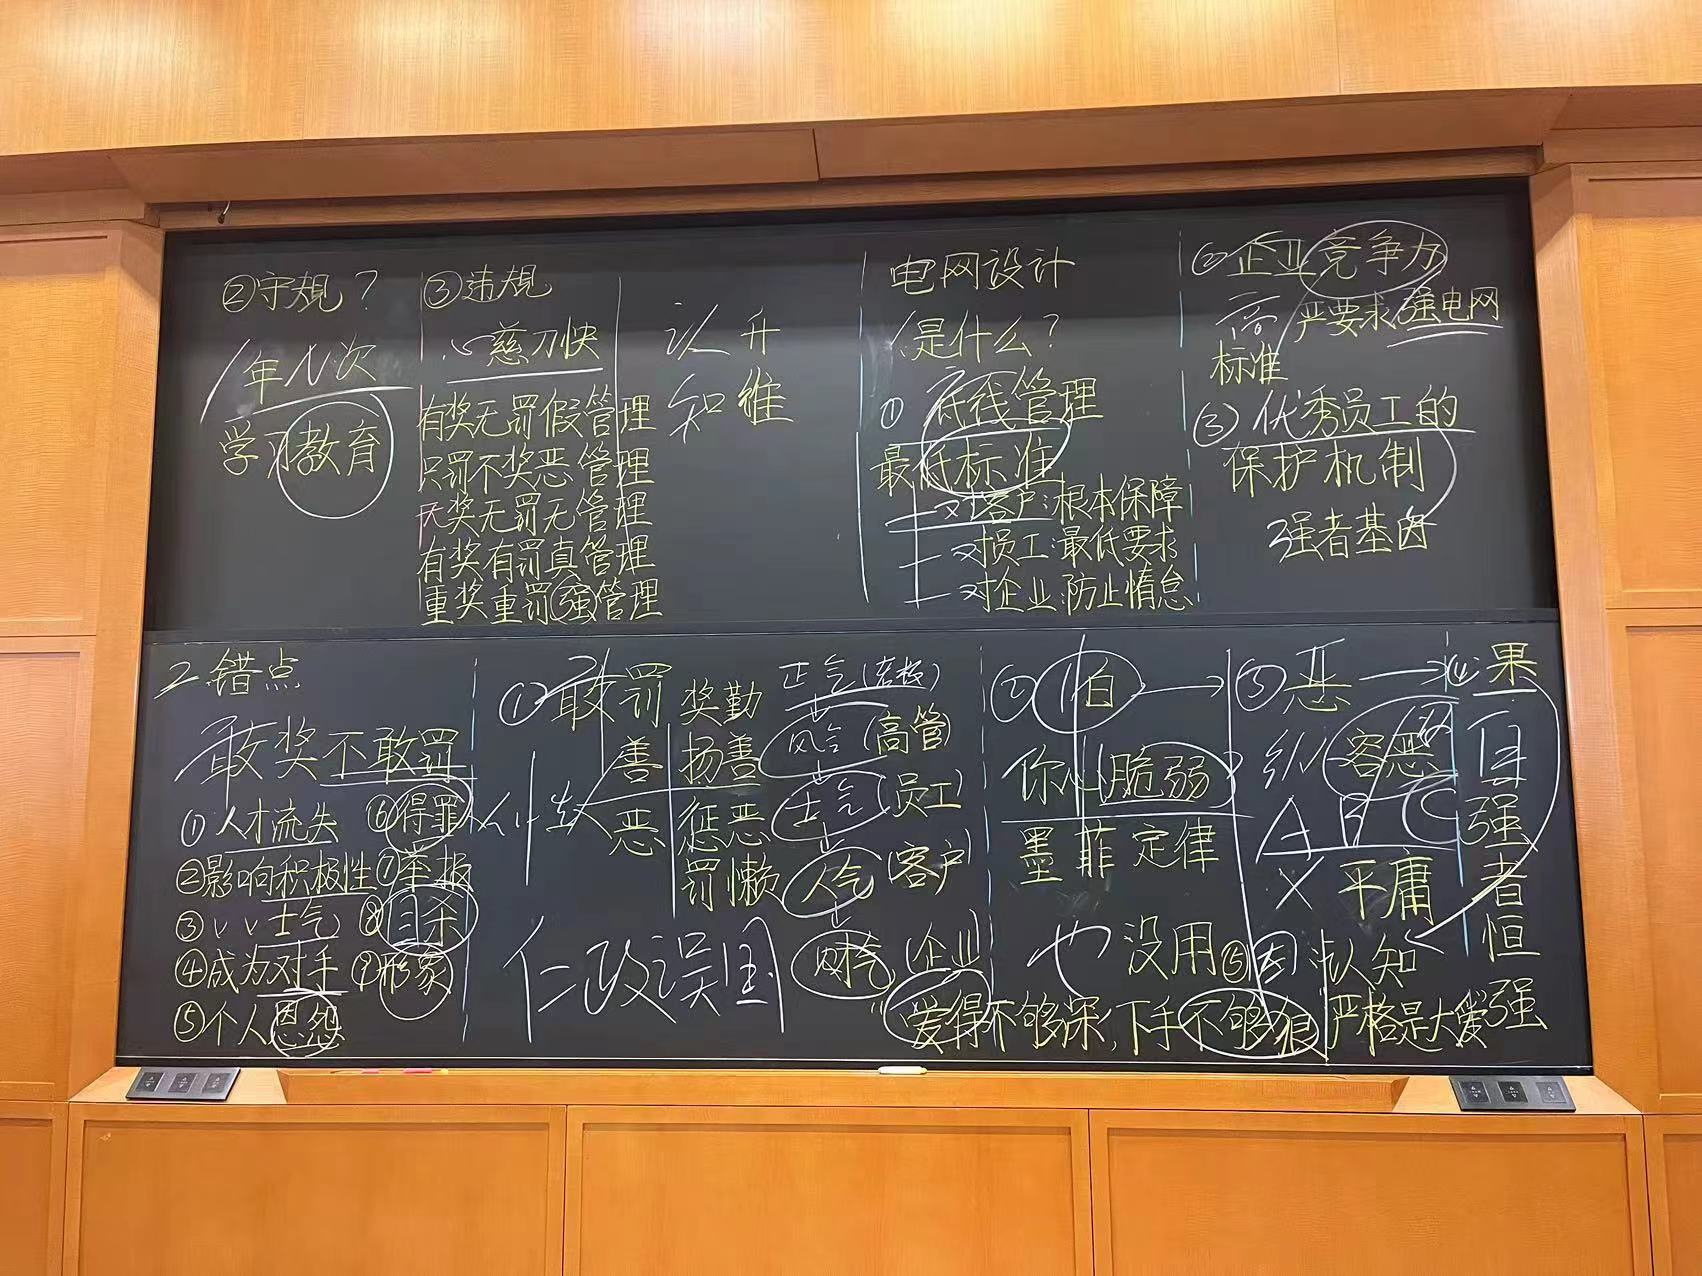 ②守规？
1年N次
学习教育
③违规
心慈刀快
有奖无罚假管理
只罚不奖恶管理
无奖无罚无管理
有奖有罚真管理
重奖重罚强管理
认升
知维
电网设计
1是什么？
①底线管理
最低标准
对客户：根本保障
对员工：最低要求
对企业：防止惰怠
②企业竞争力
高标准
严要求 强电网
③优秀员工的
保护机制
强者基因
2错点
敢奖不敢罚
①人才流失
②影响积极性
③〃〃士气
④成为对手
⑤个人恩怨
⑥得罪
⑦举报
⑧自杀
⑨形象
①敢罚
善
恶
奖勤
扬善
惩恶
罚懒
仁政误国
正气(老板)
风气(高管)
士气(员工)
人气(客户)
财气(企业)
②怕
你心脆弱
墨菲定律
也没用
③恶
纵容恶
A B C
X 平庸
④果
自
强
者
恒
强
⑤因 认知
"爱得不够深，下手不够狠
严格是大爱"